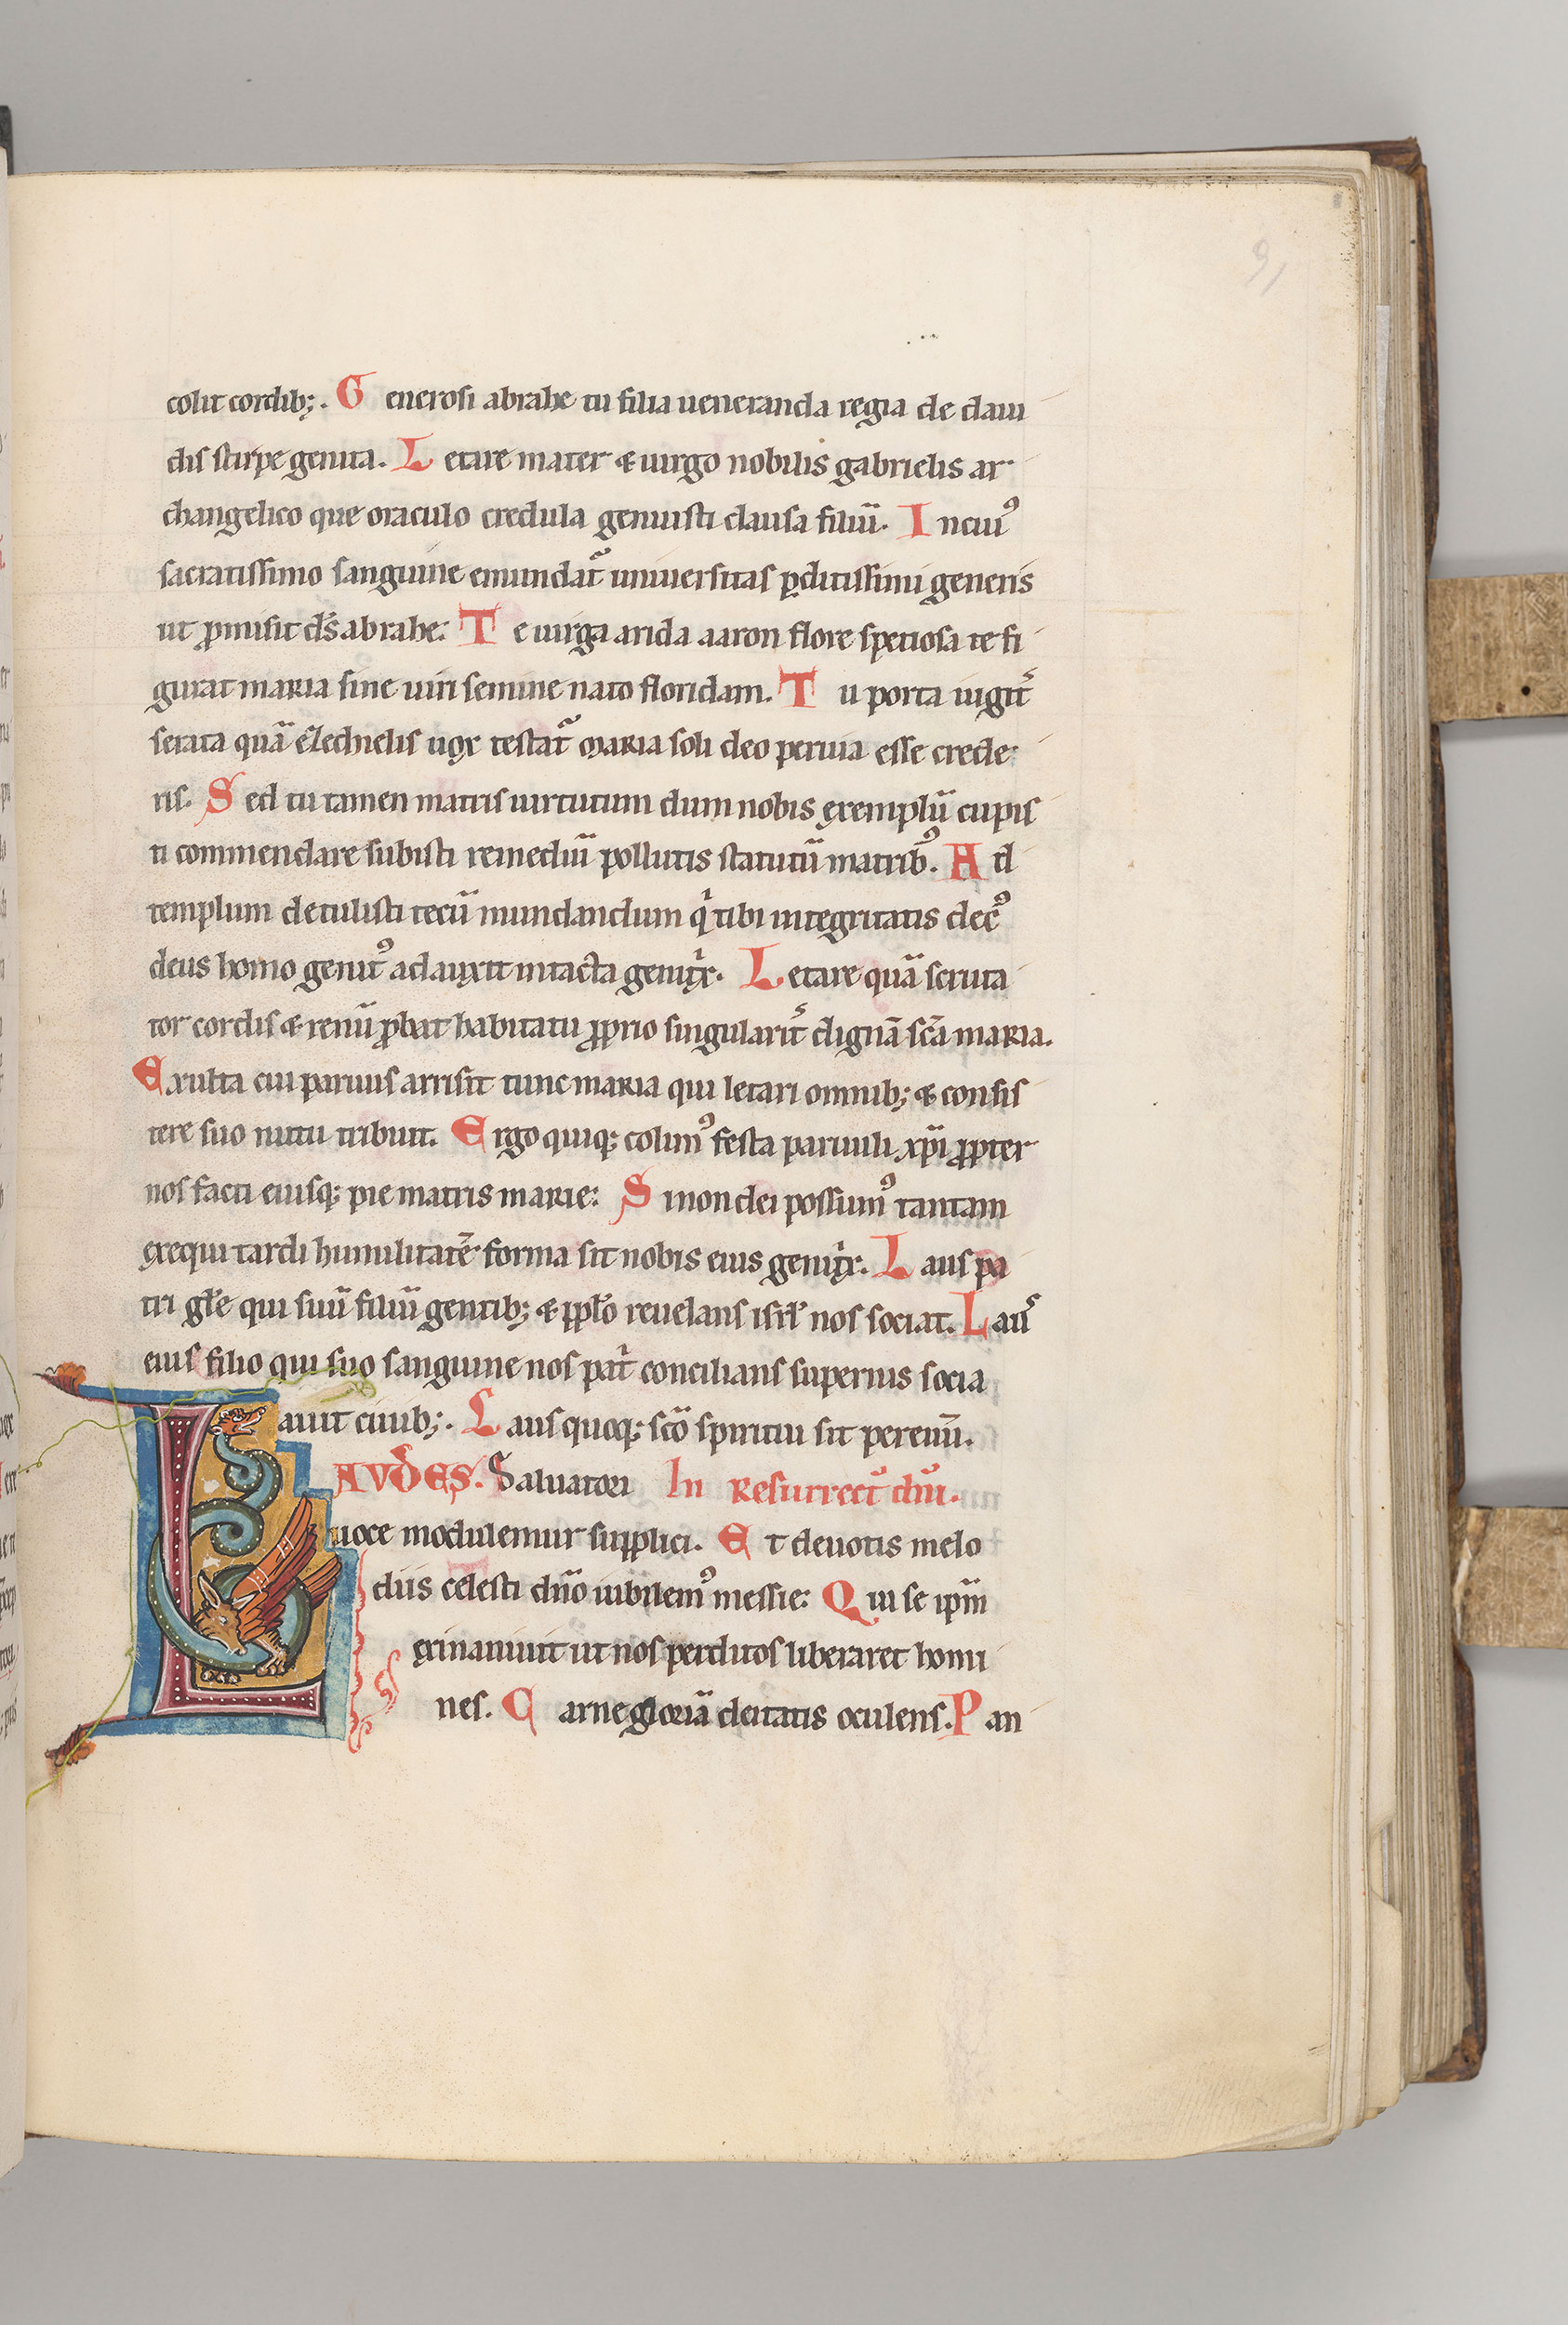 91
colit cordib;. Generosi abrahe tu filia ueneranda regia de daui
dis stirpe genita. Letare mater & uirgo nobilis gabrielis ar
changelico que oraculo credula genuisti clausa filiū. In cuiꝰ
sacratissimo sanguine emundat᷑ uniuersitas ꝑditissimi generis
ut ꝓmisit ds̄ abrahe: Te uirga arida aaron flore spetiosa te fi
gurat maria sine uiri semine nato floridam. Tu porta iugit᷑
serata quā ezechielis uox testat᷑ maria soli deo peruia esse crede
ris. Sed tu tamen matris uirtutum dum nobis exemplū cupis
ti commendare subisti remediū pollutis statutū matribꝰ. Ad
templum detulisti tecū mundandum qͥ tibi integritatis decꝰ
deus homo genitꝰ adauxit intacta genitͥx. Letare quā scruta
tor cordis & renū ꝓbat habitatu ꝓprio singularit᷑ dignā scā maria.
Exulta cui paruus arrisit tunc maria qui letari omnib; & consis
tere suo nutu tribuit. Ergo quiq; colimꝰ festa paruuli xp̄i ꝓpter
nos facti eiusq; pie matris marie: Si non dei possumꝰ tantam
exequi tardi humilitatē forma sit nobis eius genitͥx. Laus pa
tri gl̄e qui suū filiū gentib; & ppl̄o reuelans isrl̄ nos sociat. Laus
eius filio qui suo sanguine nos patͥ concilians supernis socia
uit ciuib;. Laus quoq; scō spiritui sit per euū.
LAVDES. Saluatori In Resurrect̄ dn̄i.
uoce modulemur supplici. Et deuotis melo
diis celesti dn̄o iubilemꝰ messie: Qui se ipm̄
exinaniuit ut nos perditos liberaret homi
nes. Carne gloriā deitatis oculens. Pan